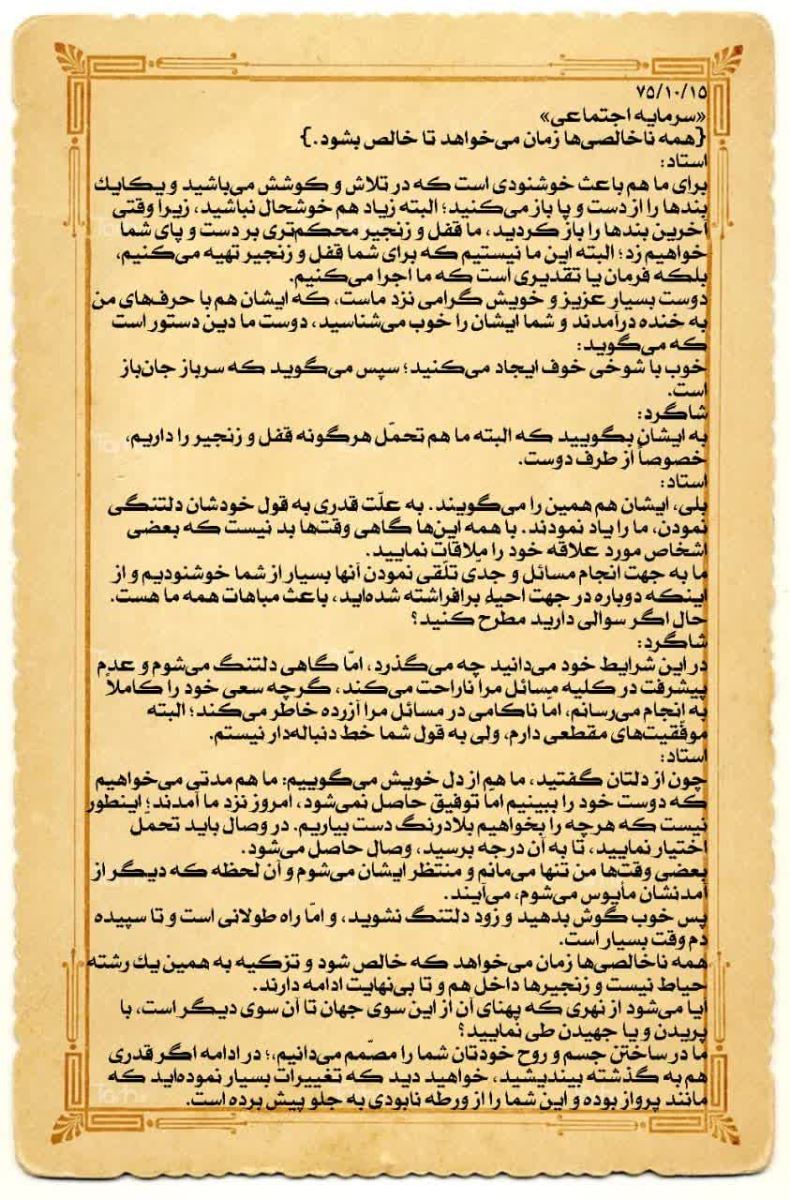 ۷۵/۱۰/۱۵
«سرمایه اجتماعی»
{همه ناخالصی‌ها زمان می‌خواهد تا خالص بشود.}
استاد:
برای ما هم باعث خوشنودی است که در تلاش و کوشش می‌باشید و یکایك
بندها را از دست و پا باز می‌کنید؛ البته زیاد هم خوشحال نباشید، زیرا وقتی
آخرین بندها را باز کردید، ما قفل و زنجیر محکم‌تری بر دست و پای شما
خواهیم زد؛ البته این ما نیستیم که برای شما قفل و زنجیر تهیه می‌کنیم،
بلکه فرمان یا تقدیری است که ما اجرا می‌کنیم.
دوست بسیار عزیز و خویش گرامی نزد ماست، که ایشان هم با حرف‌های من
به خنده درآمدند و شما ایشان را خوب می‌شناسید، دوست ما دین دستور است
که می‌گوید:
خوب با شوخی خوف ایجاد می‌کنید؛ سپس می‌گوید که سرباز جان‌باز
است.
شاگرد:
به ایشان بگویید که البته ما هم تحمّل هرگونه قفل و زنجیر را داریم،
خصوصاً از طرف دوست.
استاد:
بلی، ایشان هم همین را می‌گویند. به علّت قدری به قول خودشان دلتنگی
نمودن، ما را یاد نمودند. با همه این‌ها گاهی وقت‌ها بد نیست که بعضی
اشخاص مورد علاقه خود را ملاقات نمایید.
ما به جهت انجام مسائل و جدّی تلّقی نمودن آنها بسیار از شما خوشنودیم و از
اینکه دوباره در جهت احیاء برافراشته شده‌اید، باعث مباهات همه ما هست.
حال اگر سوالی دارید مطرح کنید؟
شاگرد:
در این شرایط خود می‌دانید چه می‌گذرد، امّا گاهی دلتنگ می‌شوم و عدم
پیشرفت در کلیه مسائل مرا ناراحت می‌کند، گرچه سعی خود را کاملاً
به انجام می‌رسانم، اما ناکامی در مسائل مرا آزرده خاطر می‌کند؛ البته
موفّقیت‌های مقطعی دارم، ولی به قول شما خط دنباله‌دار نیستم.
استاد:
چون از دلتان گفتید، ما هم از دل خویش می‌گوییم: ما هم مدتی می‌خواهیم
که دوست خود را ببینیم اما توفیق حاصل نمی‌شود، امروز نزد ما آمدند؛ اینطور
نیست که هرچه را بخواهیم بلادرنگ دست بیاریم. در وصال باید تحمّل
اختیار نمایید، تا به آن درجه برسید، وصال حاصل می‌شود.
بعضی وقت‌ها من تنها می‌مانم و منتظر ایشان می‌شوم و آن لحظه که دیگر از
آمدنشان مأیوس می‌شوم، می‌آیند.
پس خوب گوش بدهید و زود دلتنگ نشوید، و امّا راه طولانی است و تا سپیده
دم وقت بسیار است.
همه ناخالصی‌ها زمان می‌خواهد که خالص شود و تزکیه به همین یك رشته
حیاط نیست و زنجیرها داخل هم و تا بی‌نهایت ادامه دارند.
آیا می‌شود از نهری که پهنای آن از این سوی جهان تا آن سوی دیگر است، با
پریدن و یا جهیدن طی نمایید؟
ما در ساختن جسم و روح خودتان شما را مصّمم می‌دانیم،؛ در ادامه اگر قدری
هم به گذشته بیندیشید، خواهید دید که تغییرات بسیار نموده‌اید که
مانند پرواز بوده و این شما را از ورطه نابودی به جلو پیش برده است.